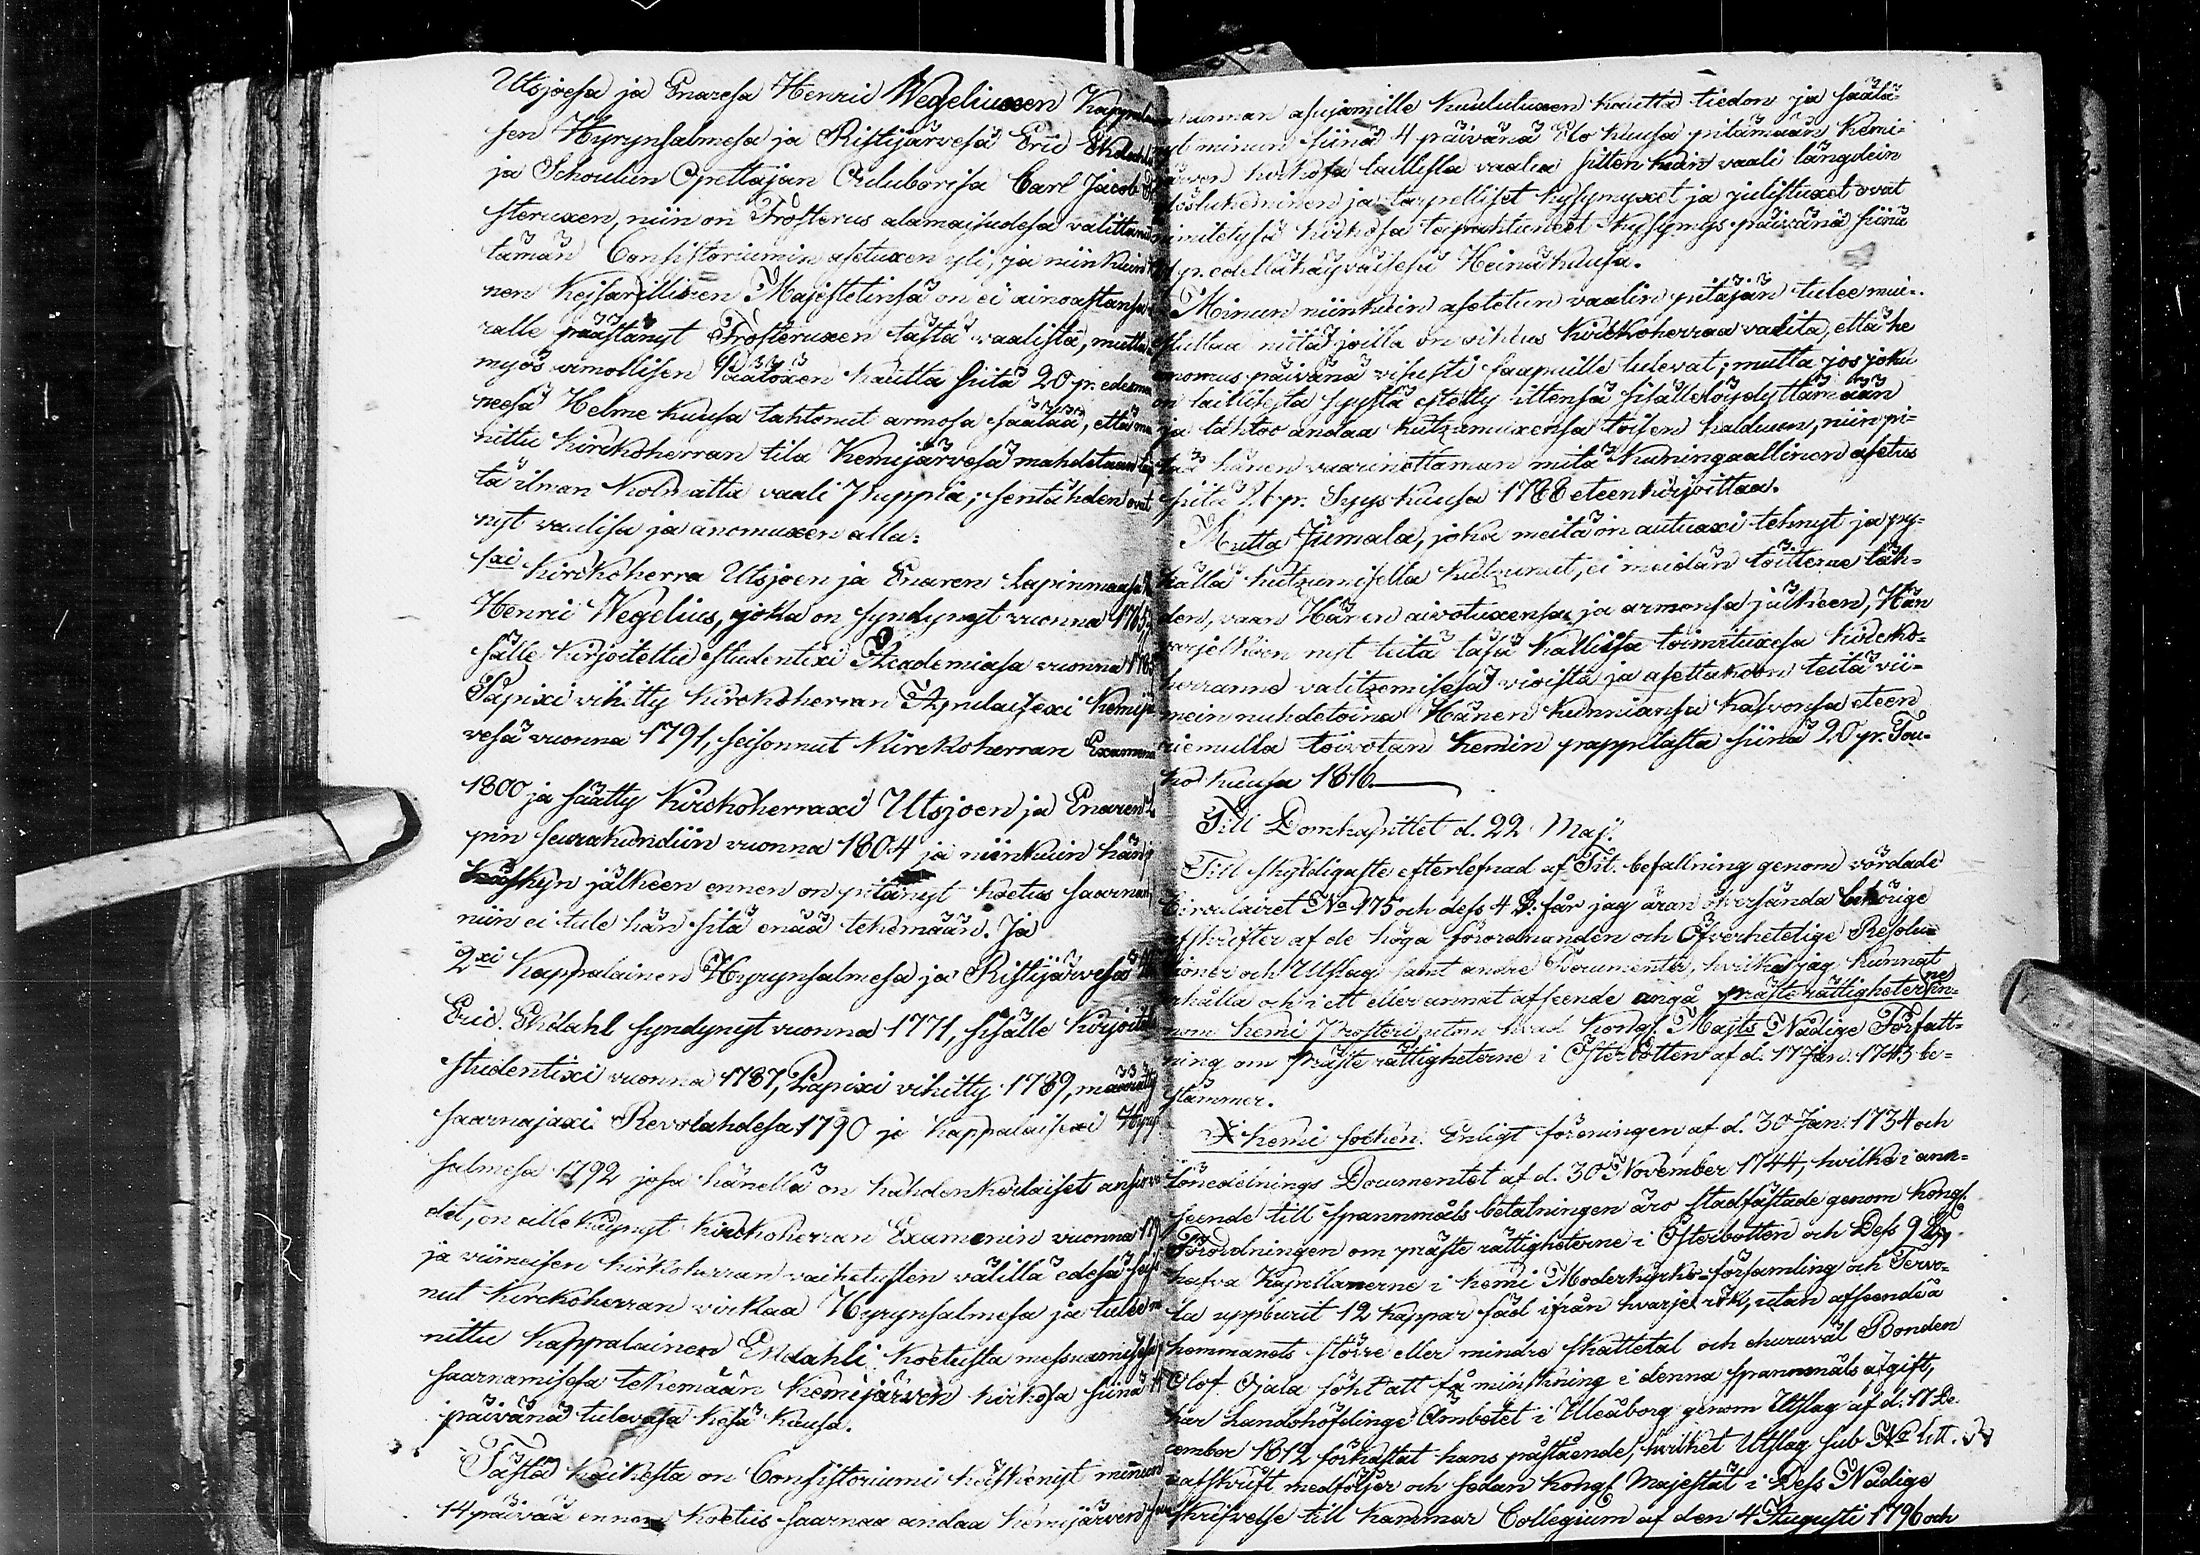 Utsjoesa ja Enaresa Henric Wegeliuxen
sen Hyrynsalmesa ja Ristijärvesä Eric Ekdahl
ja Schoulun Opettajan Ouluborisa Carl Jacob
steruxen, niin on Frosterus alamaisudesa valittanut
tämän Consistoriumin asetuxen yli, ja niinkuin
nen Keisarillisen Majestetinsä on ei ainoastansa
ralle päästänyt Frosteruxen tästä vaalista, mutta
myös armollisen Päätöxen kautta siitä 20 p:
neesä Helme kuusa tahtonut armosa säätää, että
nittu kirckoherran tila Kemijärvesä mahdetaan
tä ilman kolmatta vaali Pappia; sentähden ovat
nyt vaalisa ja anomuxen alla:
1xi Kirckoherra Utsjoen ja Enaren Lapinmaasa
Henric Wegelius, joka on syndynyt vuonna 1765,
sälle kirjoitettu studentixi Academiasa vuonna 1785
Papixi vihitty kirckoherran Apulaisexi Kemijär
vesä vuonna 1791, seisonnut Kirckoherran Examenin
1800 ja säätty Kirckoherraxi Utsjoen ja Enaren
pin seurakundiin vuonna 1804 ja niinkuin hän
käskyn jälkeen ennen on pitänyt koetus saarnan
niin ei tule hän sitä enää tekemään. Ja
2xi Kappalainen Hyrynsalmesa ja Ristijärvesä
Eric Ekdahl syndynyt vuonna 1771, sisälle kirjoitettu
studentixi vuonna 1787, Papixi vihitty 1789, määrätty
saarnajaxi Revolahdesa 1790 ja kappalaisexi Hyryn
salmesa 1792 josa hänellä on kahdenkerlaiset
det, on alle käynyt Kirckoherran Examenin vuonna
ja viimeisen kirkoherran vaihetusten välillä edesä
nut kirckoherran virkaa Hyrynsalmesa ja tulee
nittu kappalainen Ekdahli koetusta messuamisesa
saarnamisesa tekemään Kemijärven kirkosa siinä
päivänä tulevasa kesä kuusa.
Tästä kaikesta on Consistoriumi käskenyt minun
14 päivää ennen koetus saarnaa andaa Kemijärven
kunnan asujamille kuulutuxen kautta tiedon ja säätä-
nyt minun siinä 4 päivänä Elo kuusa pitämään Kemi-
järven kirkosa laillista vaalia sitten kuin vaali längdein
ylöslukeminen ja tarpelliset kysymyxet ja julistuxet ovat
nimitetysä kirkosa tapahtuneet kysymys-päivänä siinä
p: edelläkäyväisesä Heinäkuusa.
Minun niinkuin asetetun vaalin pitäjän tulee mui-
stuttaa niitä joilla on oikeus kirckoherraa valita, että he
anomus päivänä visusti saapuille tulevat; mutta jos joku
on laillisesta syystä estetty ittensä sisälle löydyttämään
ja tahtoo andaa kutzumuxensa toisen halduun, niin pi-
tää hänen vaarinottaman mitä Kuningaallinen asetus
siitä p: Syys kuusa 1788 eteenkirjoittaa.
Mutta Jumala, joka meitä on autuaxi tehnyt ja py-
hällä kutzumisella kutzunut, ei meidän töitteme täh-
den, vaan Hänen aivotuxensa ja armonsa jälkeen, Hän
varjelkoon nyt teitä täsä kallisa toimituxesa kircko-
herranne valitzemisesa vioista ja asettakoon teitä vii-
mein nuhdetoina Hänen kunniansa kasvonsa eteen
riemulla toivotan Kemin pappilasta siinä 20 p: Tou-
ko kuusa 1816.
Till Domkapitlet d. 22 Maj.
Till skyldigaste efterlefnad af Tit. befallning genom vördade
Circulairet No 175 och dess 4 §: får jag äran öfversända behörige
afskrifter af de höga förordnanden och Öfverhetelige Resolu-
tioner och Utslag samt andre Documenter, hvilka jag kunnat
erhålla och i ett eller annat afseende angå präste rättigheterne in-
nom Kemi Prosteri, utom hvad Kongl. Majts Nådige Författ-
ning om präste rättigheterne i Österbotten af d. 17 Jan. 1743 be-
stämmer.
I Kemi socken. Enligt föreningen af d. 30 Jan. 1734 och
löneedelnings Documentet af d. 30 November 1744, hvilka i ann-
seende till spannmåls betalningen äro stadfästade genom Kongl.
Förordningen om präste rättigheterne i Österbotten och Dess 9
hafva Kapellanerne i Kemi Moderkyrko-församling och Tervo-
la uppburit 12 kappar säd ifrån hvarje rök, utan afseende å
hemmanets större eller mindre skattetal och ehuruväl Bonden
Olof Ojala sökt att få minskning i denna spannmåls afgift,
har Landshöfdinge Ämbetet i Uleåborg genom Utslag af d. 17 De-
cember 1812 förkastat hans påstående, hvilket Utslag sub No litt. A
i afskrift medföljer och sedan Kongl. Majestät i Dess Nådige
skrifvelse till Kammar Collegium af den 4 Augusti 1796 och